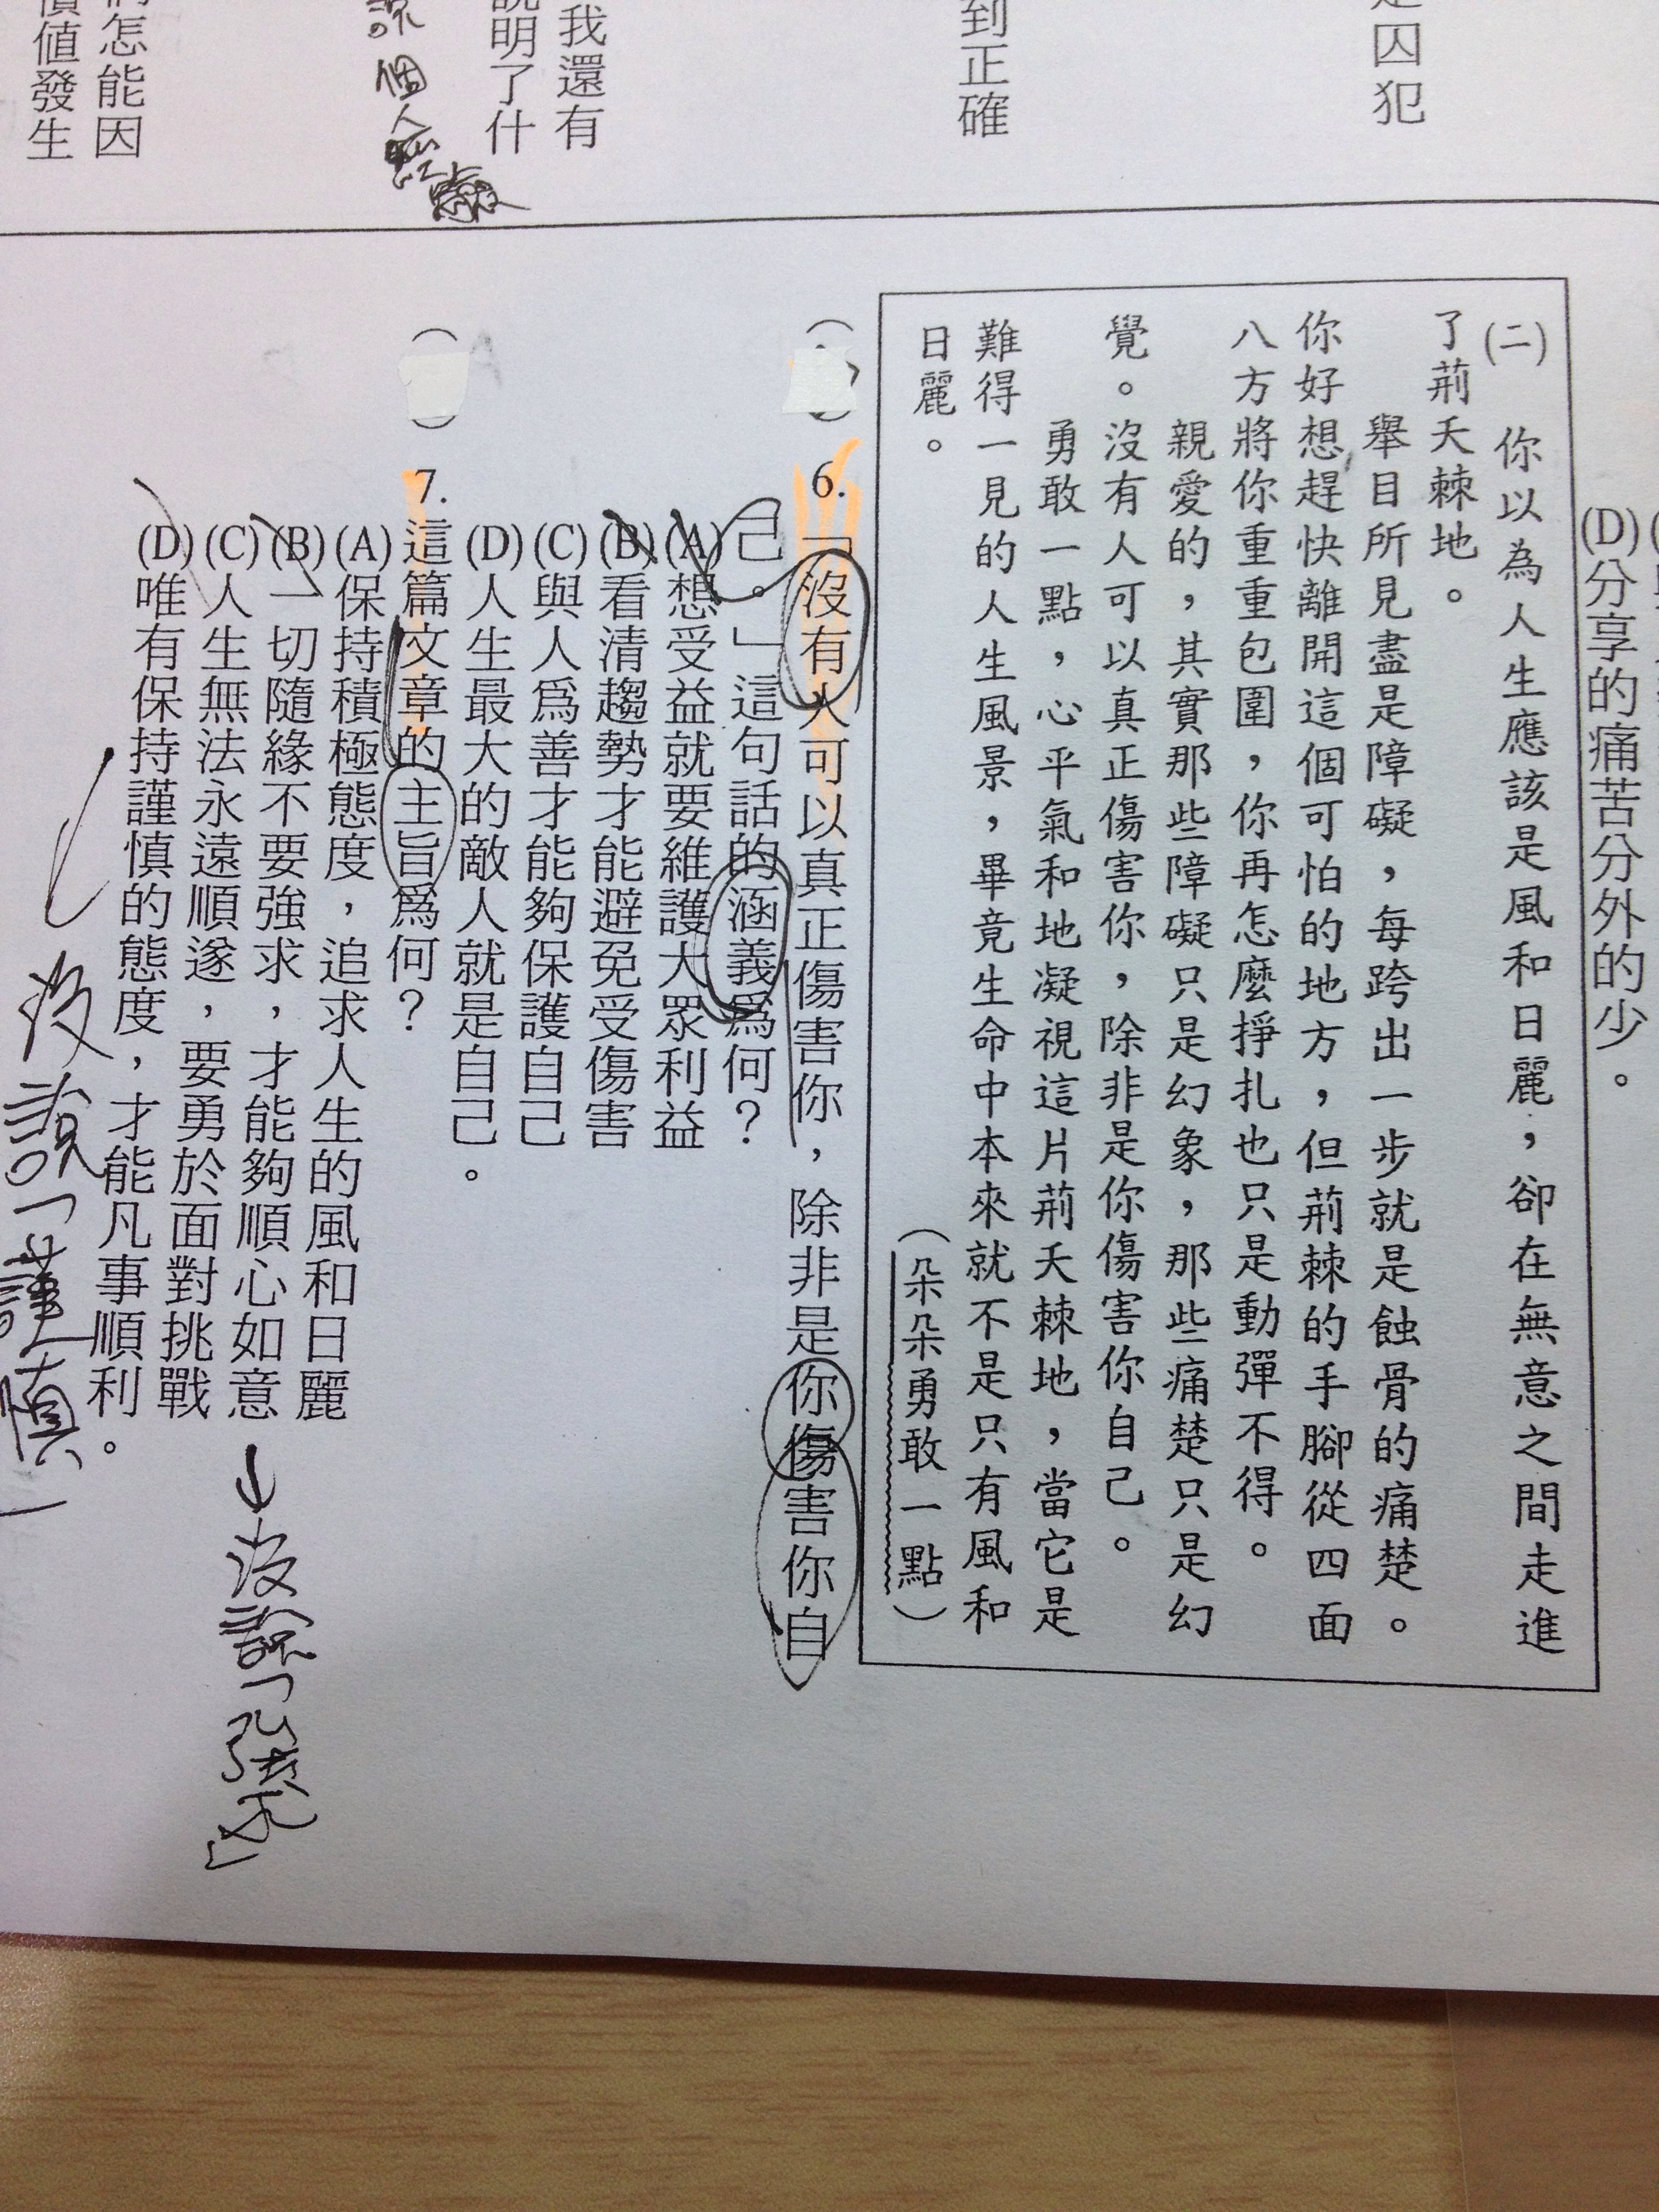 是囚犯
到正確
我還有
說明了什
個人經驗
們怎能因
價值發生
(D)分享的痛苦分外的少。
(二) 你以為人生應該是風和日麗，卻在無意之間走進
了荊天棘地。
舉目所見盡是障礙，每跨出一步就是蝕骨的痛楚。
你好想趕快離開這個可怕的地方，但荊棘的手腳從四面
八方將你重重包圍，你再怎麼掙扎也只是動彈不得。
親愛的，其實那些障礙只是幻象，那些痛楚只是幻
覺。沒有人可以真正傷害你，除非是你傷害你自己。
勇敢一點，心平氣和地凝視這片荊天棘地，當它是
難得一見的人生風景，畢竟生命中本來就不是只有風和
日麗。
（朵朵勇敢一點）
( ) 6.「沒有人可以真正傷害你，除非是你傷害你自
己。」這句話的涵義爲何？
(A)想受益就要維護大眾利益
(B)看清趨勢才能避免受傷害
(C)與人爲善才能夠保護自己
(D)人生最大的敵人就是自己。
( ) 7.這篇文章的主旨爲何？
(A)保持積極態度，追求人生的風和日麗
(B)一切隨緣不要強求，才能夠順心如意
→沒說「強求」
(C)人生無法永遠順遂，要勇於面對挑戰
(D)唯有保持謹慎的態度，才能凡事順利。
沒說「謹慎」